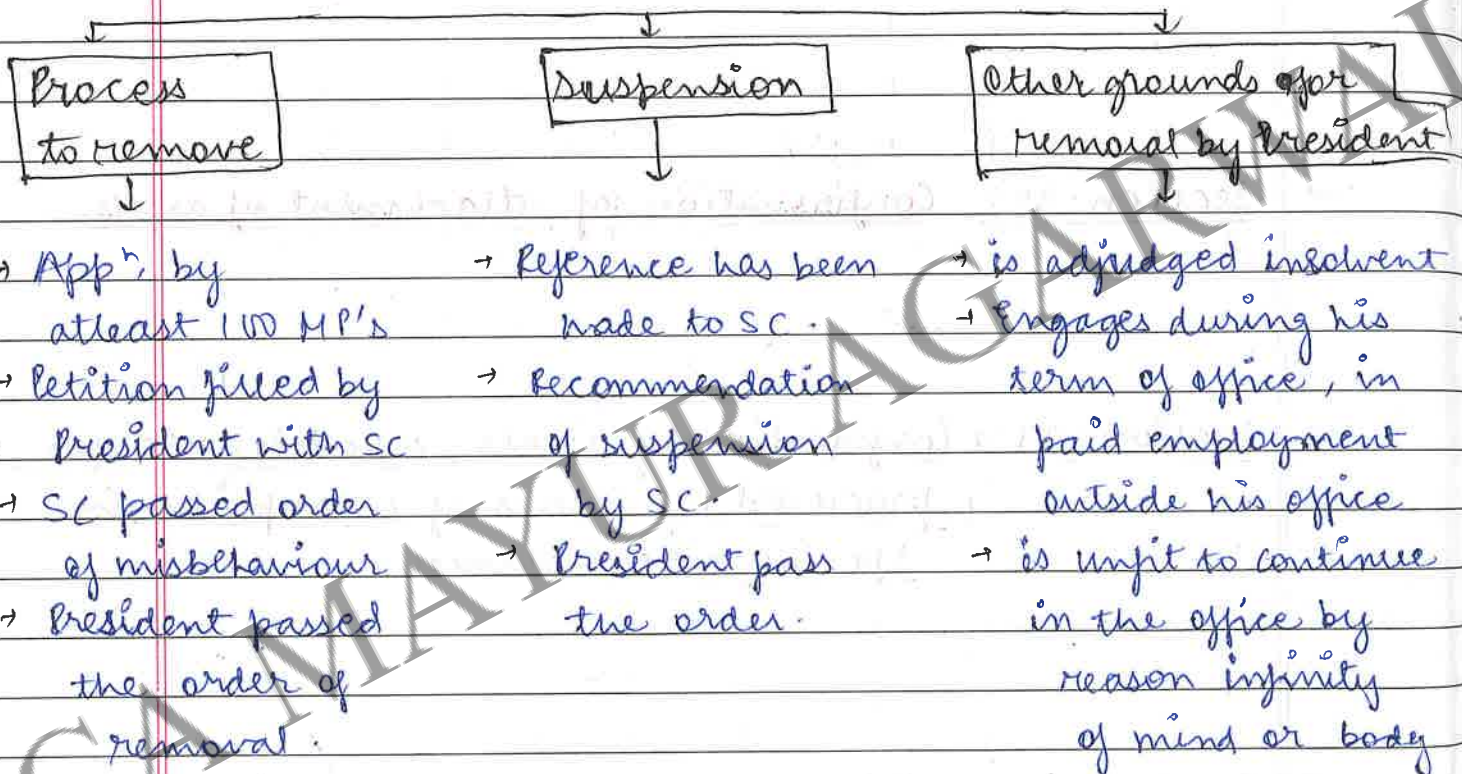 Process
to remove
→ Appⁿ, by
atleast 100 MP's
→ Petition filled by
President with SC
→ SC passed order
of misbehaviour
→ President passed
the order of
removal.
Suspension
→ Reference has been
made to SC.
→ Recommendation
of suspension
by SC.
→ President pass
the order.
Other grounds for
removal by President
→ is adjudged insolvent
→ Engages during his
term of office, in
paid employment
outside his office
→ is unfit to continue
in the office by
reason infinity
of mind or body
CA MAYUR AGARWAL